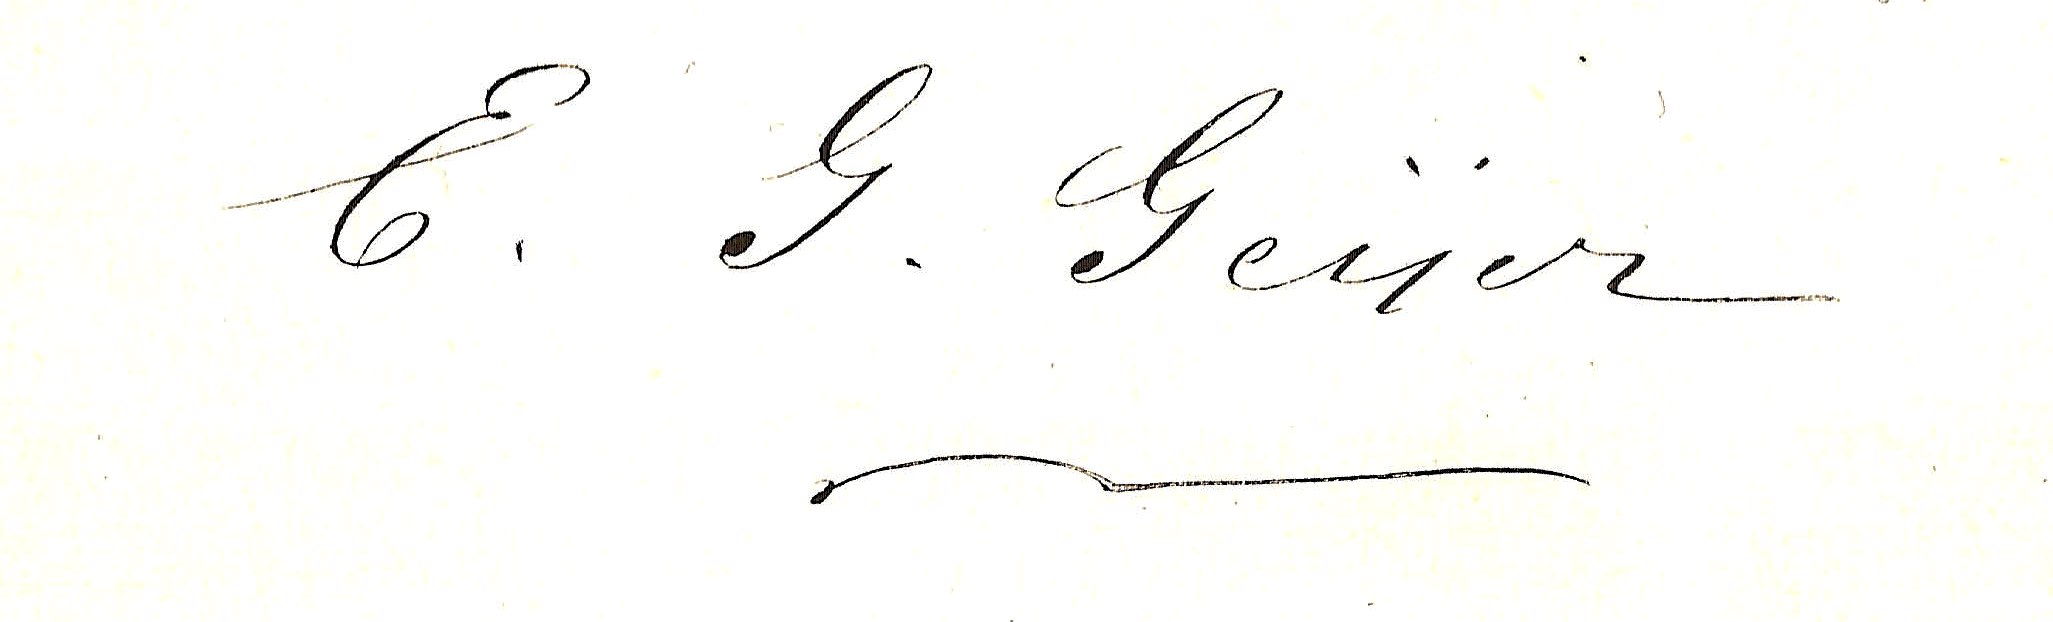 E. G. Geijer